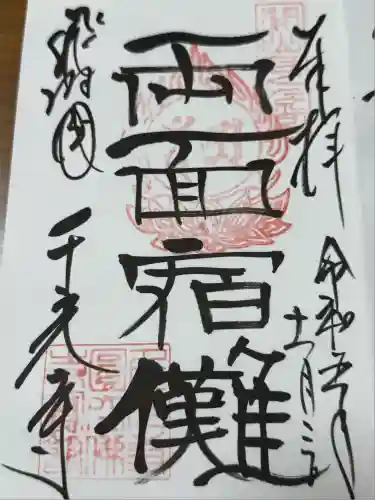 奉拝
令和五年
十一月三日
両面宿儺
飛騨國
千光寺